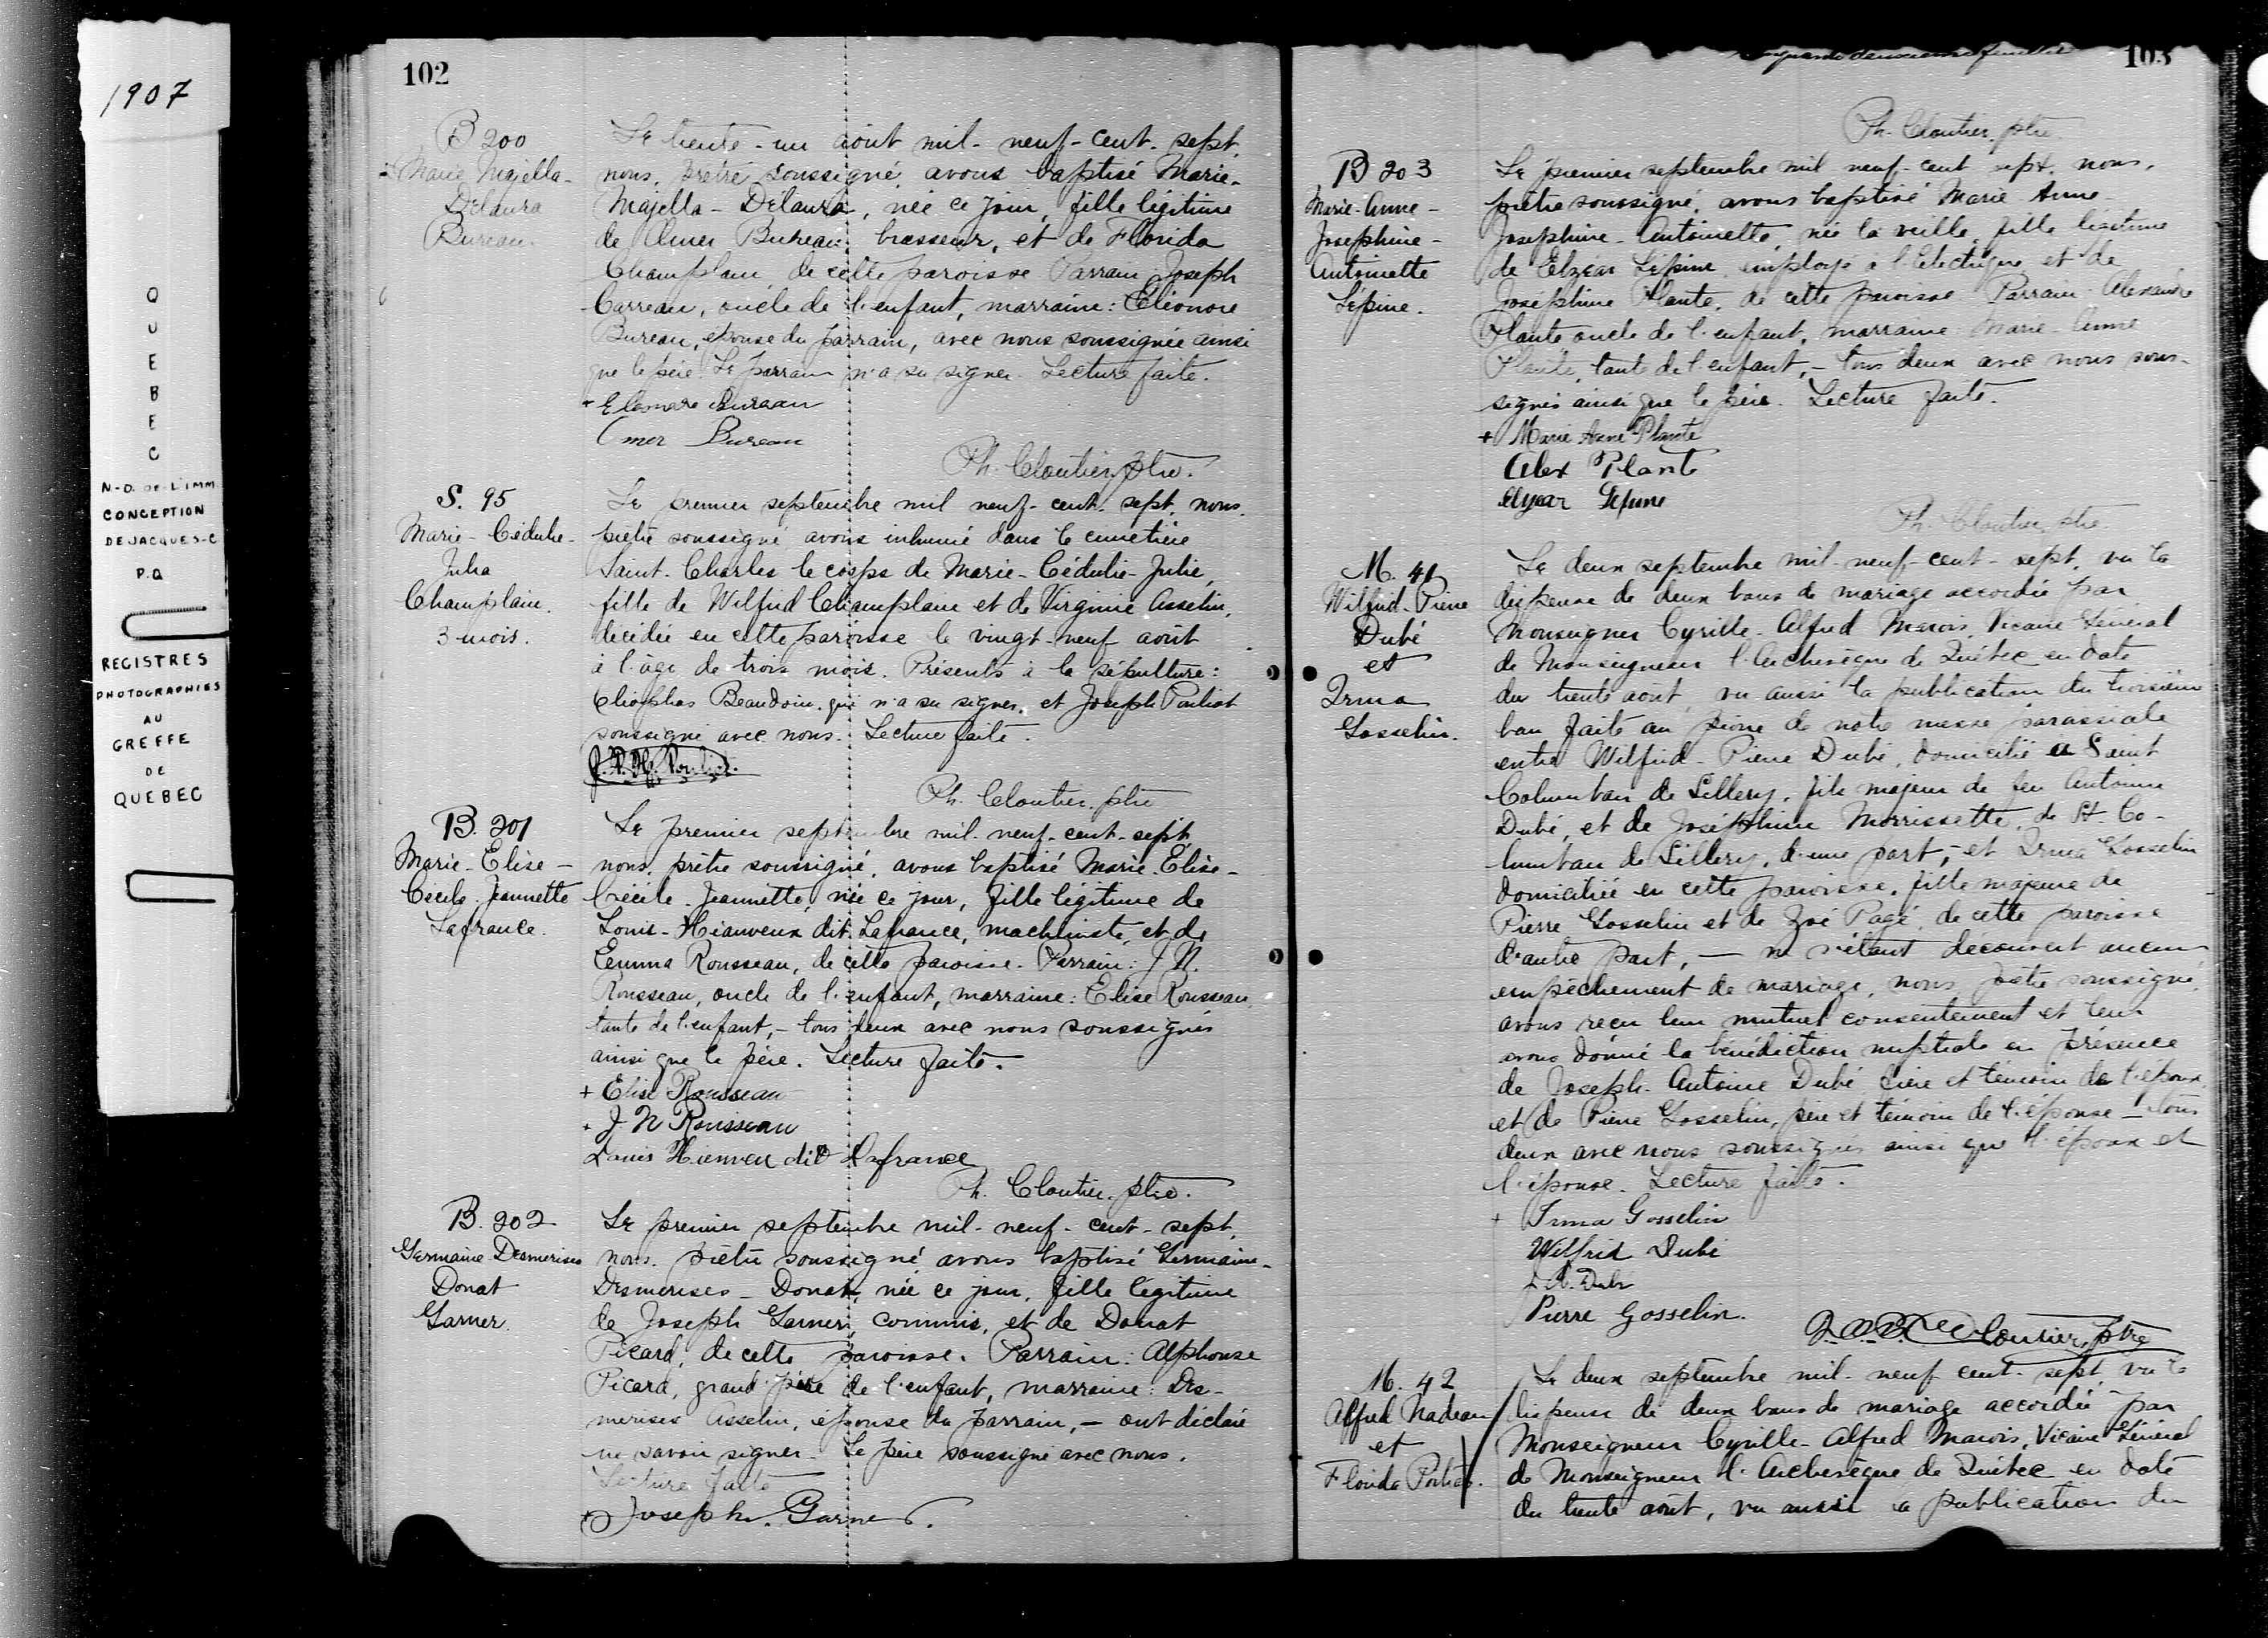 1907
Q
U
E
B
E
C
N-D. DE L'IMM.
CONCEPTION
DE JACQUES-C
P.Q
REGISTRES
PHOTOGRAPHIES
AU
GREFFE
DE
QUEBEC
102
B 200
Marie Majella-
Délaura
Bureau.
Le trente-un août mil-neuf-cent-sept,
nous, prêtre soussigné, avons baptisé Marie-
Majella-Délaura, née ce jour, fille légitime
de Omer Bureau, brasseur, et de Florida
Champlain, de cette paroisse. Parrain Joseph
Carreau, oncle de l'enfant, marraine: Eléonore
Bureau, épouse du parrain, avec nous soussignée ainsi
que le père. Le parrain n'a su signer. Lecture faite.
+ Eleonare Bureau
Omer Bureau
Ph. Cloutier, ptre.
S. 95
Marie-Cédulie-
Julia
Champlain.
3 mois.
Le premier septembre mil neuf-cent-sept, nous,
prêtre soussigné, avons inhumé dans le cimetière
Saint-Charles le corps de Marie-Cédulie-Julie,
fille de Wilfrid Champlain et de Virginie Asselin,
décédée en cette paroisse le vingt-neuf août
à l'âge de trois mois. Présents à la sépulture:
Cléophas Beaudoin, qui n'a su signer, et Joseph Pouliot
soussigné avec nous. Lecture faite.
Ph. Cloutier, ptre
B. 201
Marie-Elise-
Cécile-Jeannette
Lafrance.
Le premier septembre mil-neuf-cent-sept,
nous, prêtre soussigné, avons baptisé Marie-Elise-
Cécile-Jeannette, née ce jour, fille légitime de
Louis-Hianveux dit Lafrance, machiniste, et de
Emma Rousseau, de cette paroisse. Parrain: J. N.
Rousseau, oncle de l'enfant, marraine: Elise Rousseau,
tante de l'enfant,- tous deux avec nous soussignés
ainsi que le père. Lecture faite.
+ Elise Rousseau
+ J. N Rousseau
Louis Hienveu dit Lafrance
Ph. Cloutier, ptre.
B. 202
Germaine Desmerises
Donat
Garner.
Le premier septembre mil-neuf-cent-sept,
nous, prêtre soussigné, avons baptisé Germaine-
Desmerises-Donat, née ce jour, fille légitime
de Joseph Garner, commis, et de Donat
Picard, de cette paroisse. Parrain: Alphonse
Picard, grand-père de l'enfant, marraine: Des-
merises Asselin, épouse du parrain,- ont déclaré
ne savoir signer. Le père soussigné avec nous.
Lecture faite
+ Joseph. Garner.
103
Ph. Cloutier, ptre.
B 203
Marie-Anne-
Josephine-
Antoinette
Lépine.
Le premier septembre mil neuf-cent sept, nous,
prêtre soussigné, avons baptisé Marie-Anne-
Joséphine-Antoinette, née la veille, fille légitime
de Elzéar Lépine, employé à l'électrique et de
Joséphine Plante, de cette paroisse. Parrain: Alexandre
Plante oncle de l'enfant, marraine: Marie-Anne
Plante, tante de l'enfant,- tous deux avec nous sous-
signés ainsi que le père. Lecture faite.
+ Marie Anne Plante
Alex Plante
Elzear Lépine
Ph. Cloutier, ptre
M. 41
Wilfrid-Pierre
Dubé
et
Irma
Gosselin.
Le deux septembre mil-neuf-cent-sept, vu la
dispense de deux bans de mariage accordée par
Monseigneur Cyrille-Alfred Marois, Vicaire Général
de Monseigneur l'Archevêque de Québec en date
du trente août, vu aussi la publication du troisième
ban faite au prône de notre messe paroissiale
entre Wilfrid-Pierre Dubé, domicilié à Saint
Colomban de Sillery, fils majeur de feu Antoine
Dubé, et de Joséphine Morrissette, de St. Co-
lomban de Sillery, d'une part,- et Irma Gosselin
domiciliée en cette paroisse, fille majeure de
Pierre Gosselin et de Zoé Pagé, de cette paroisse
d'autre part,- ne s'étant découvert aucun
empêchement de mariage, nous, prêtre soussigné,
avons reçu leur mutuel consentement et leur
avons donné la bénédiction nuptiale en présence
de Joseph-Antoine Dubé frère et témoin de l'époux,
et de Pierre Gosselin, père et témoin de l'épouse- tous
deux avec nous soussignés ainsi que l'époux et
l'épouse. Lecture faite.
+ Irma Gosselin
Wilfrid Dubé
Pierre Gosselin.
Cloutier, Ptre
M. 42
Alfred Nadeau
et
Florida Pouliot.
Le deux septembre mil-neuf cent-sept, vu la
dispense de deux bans de mariage accordée par
Monseigneur Cyrille-Alfred Marois, Vicaire Général
de Monseigneur l'Archevêque de Québec en date
du trente août, vu aussi la publication du